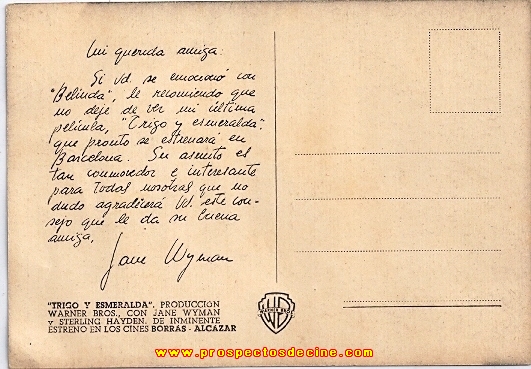 Mi querida amiga:
Si Vd. se emocionó con
"Belinda", le recomiendo que
no deje de ver mi última
película, "Trigo y esmeralda",
que pronto se estrenará en
Barcelona. Su asunto es
tan conmovedor e interesante
para todas nosotras que no
dudo agradecerá Vd. este con-
sejo que le da su buena
amiga,
Jane Wyman
"TRIGO Y ESMERALDA". PRODUCCIÓN
WARNER BROS., CON JANE WYMAN
y STERLING HAYDEN. DE INMINENTE
ESTRENO EN LOS CINES BORRÁS - ALCÁZAR
WB
www.prospectosdecine.com